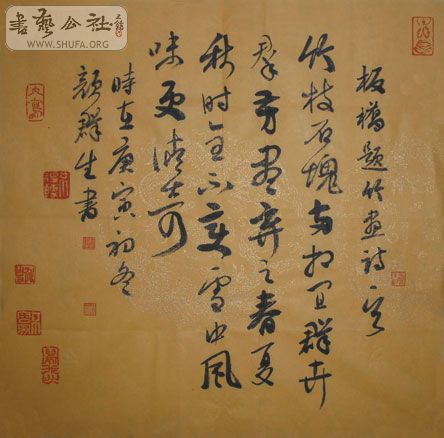 書藝公社
WWW.SHUFA.ORG
板橋题竹画诗一首
竹枝石塊两相宜群卉
羣芳尽弃之春夏
秋时全不变雪中风
味更清奇
時在庚寅初冬
颜群生書